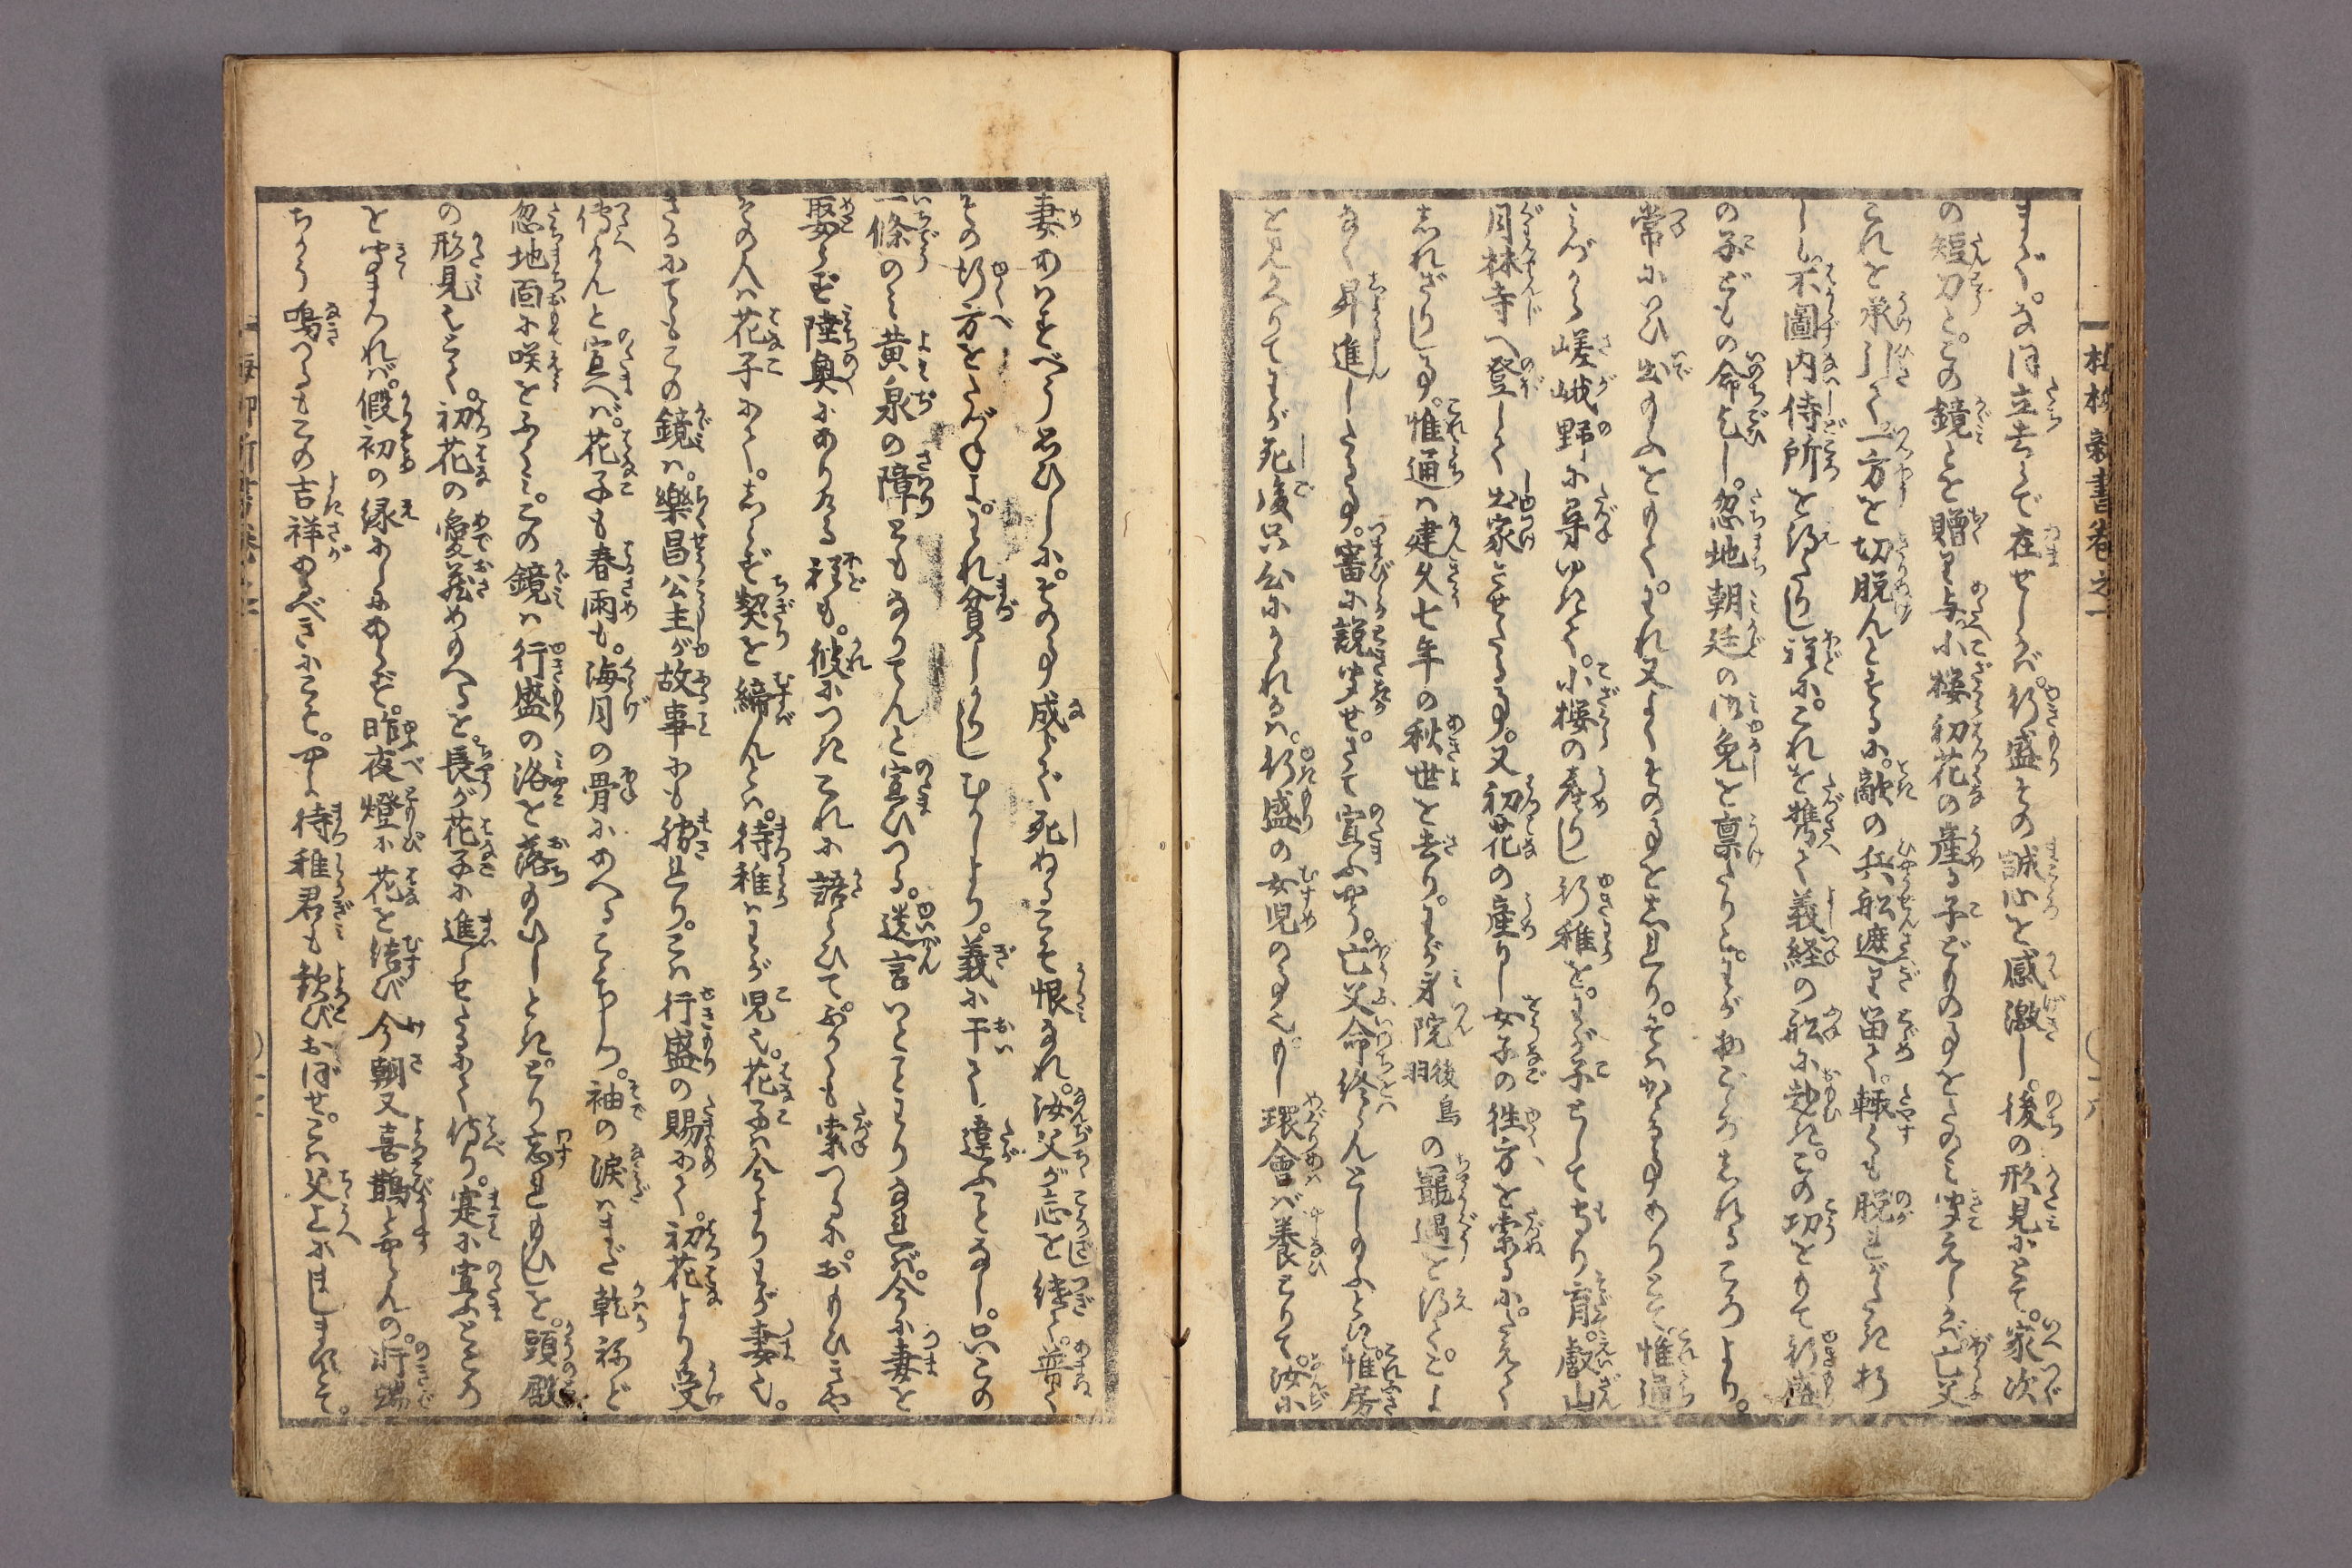 梅柳新書巻之一
まじ。なほ立去らで在せしかば。行盛その誠心を感激し。後の形見にとて。家次
の短刀と。この鏡とを贈り与。小櫻初花の産る子どものことをたのみ聞えしかば亡父
これを承引て一方を切脱んとするに。敵の兵舩遮り留て。輙くも脱れがたき折
しも不圖内侍所を得たりし程に。これを携て義経の舩に赴き。この功をもて行盛
の子どもの命乞し。忽地朝廷の御免を禀たりと。わが物ごゝろしれるころより。
常にいひ出給ふをもて。われ又よくその事をしれり。そはかゝる事ありとて惟通
みづから嵯峨野に尋ゆきて。小櫻の産りし行稚を。わが子として守り育。叡山
月林寺へ登して出家させたる事。又初花の産りし女子の往方を索るに。たえて
しれざりし事。惟通は建久七年の秋世を去り。わが身院後鳥羽の寵遇を得て。こよ
なく昇進したる事。審に説聞せ。さて宣ふやう。亡父命終らんとし給ふとき。惟房
を見かへりてわが死後只心にかゝれるは。行盛の女児の事也。もし環會ば養とりて。汝に
妻あはすべう思ひしに。その事成らで死ぬるこそ恨なれ。汝父が志を続て。普く
その行方をたづねよ。われ貧しかりしむかしより。義に干して違ふことなし。只この
一條のみ黄泉の障ともなりてんと宣ひつる。遺言いとことわりなれば。今に妻を
娶らず陸奥にありける程も。彼につきこれに語らひて。ふかくも索つるに。おもひきや
その人は花子にて。しらず契を締んとは。待稚はわが児也。花子は今よりわが妻也。
さるにてもこの鏡は。樂昌公主が故事にも勝れり。こは行盛の賜にて。初花より受
傳けんと宣へば。花子も春雨も。海月の骨にあへるこゝちし。袖の涙はまだ乾ねど
忽地面に咲をふくみ。この鏡は行盛の洛を落給ひしとき。とり忘れ給ひしを。頭殿
の形見にもとて。初花の愛蔵め給へるを。長が花子に進らせたるにて侍り。寔に宣ふところ
を聞まつれば。假初の縁にしあらず。昨夜燈に花を結び今朝又喜鵲とやらんの。軒端
ちかう鳴つるもこの吉祥あるべきにこそ。やよ待稚君も歓びおぼせ。こは父上にましますにて。